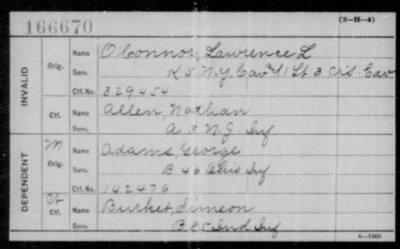 166670
(3-H-4)
INVALID
Orig. Name O'Connor, Lawrence L
Serv. K 5 N.Y. Cav & 1 Lt 3 Cis. Cav
Ctf. No. 329454
Ctf. Name Allen, Nathan
Serv. A 3 N.J. Inf
DEPENDENT
M Orig. Name Adams, George
Serv. B 46 Ohio Inf
Ctf. No. 142476
Ctf. Name Burket, Simeon
Serv. B 85 Ind Inf